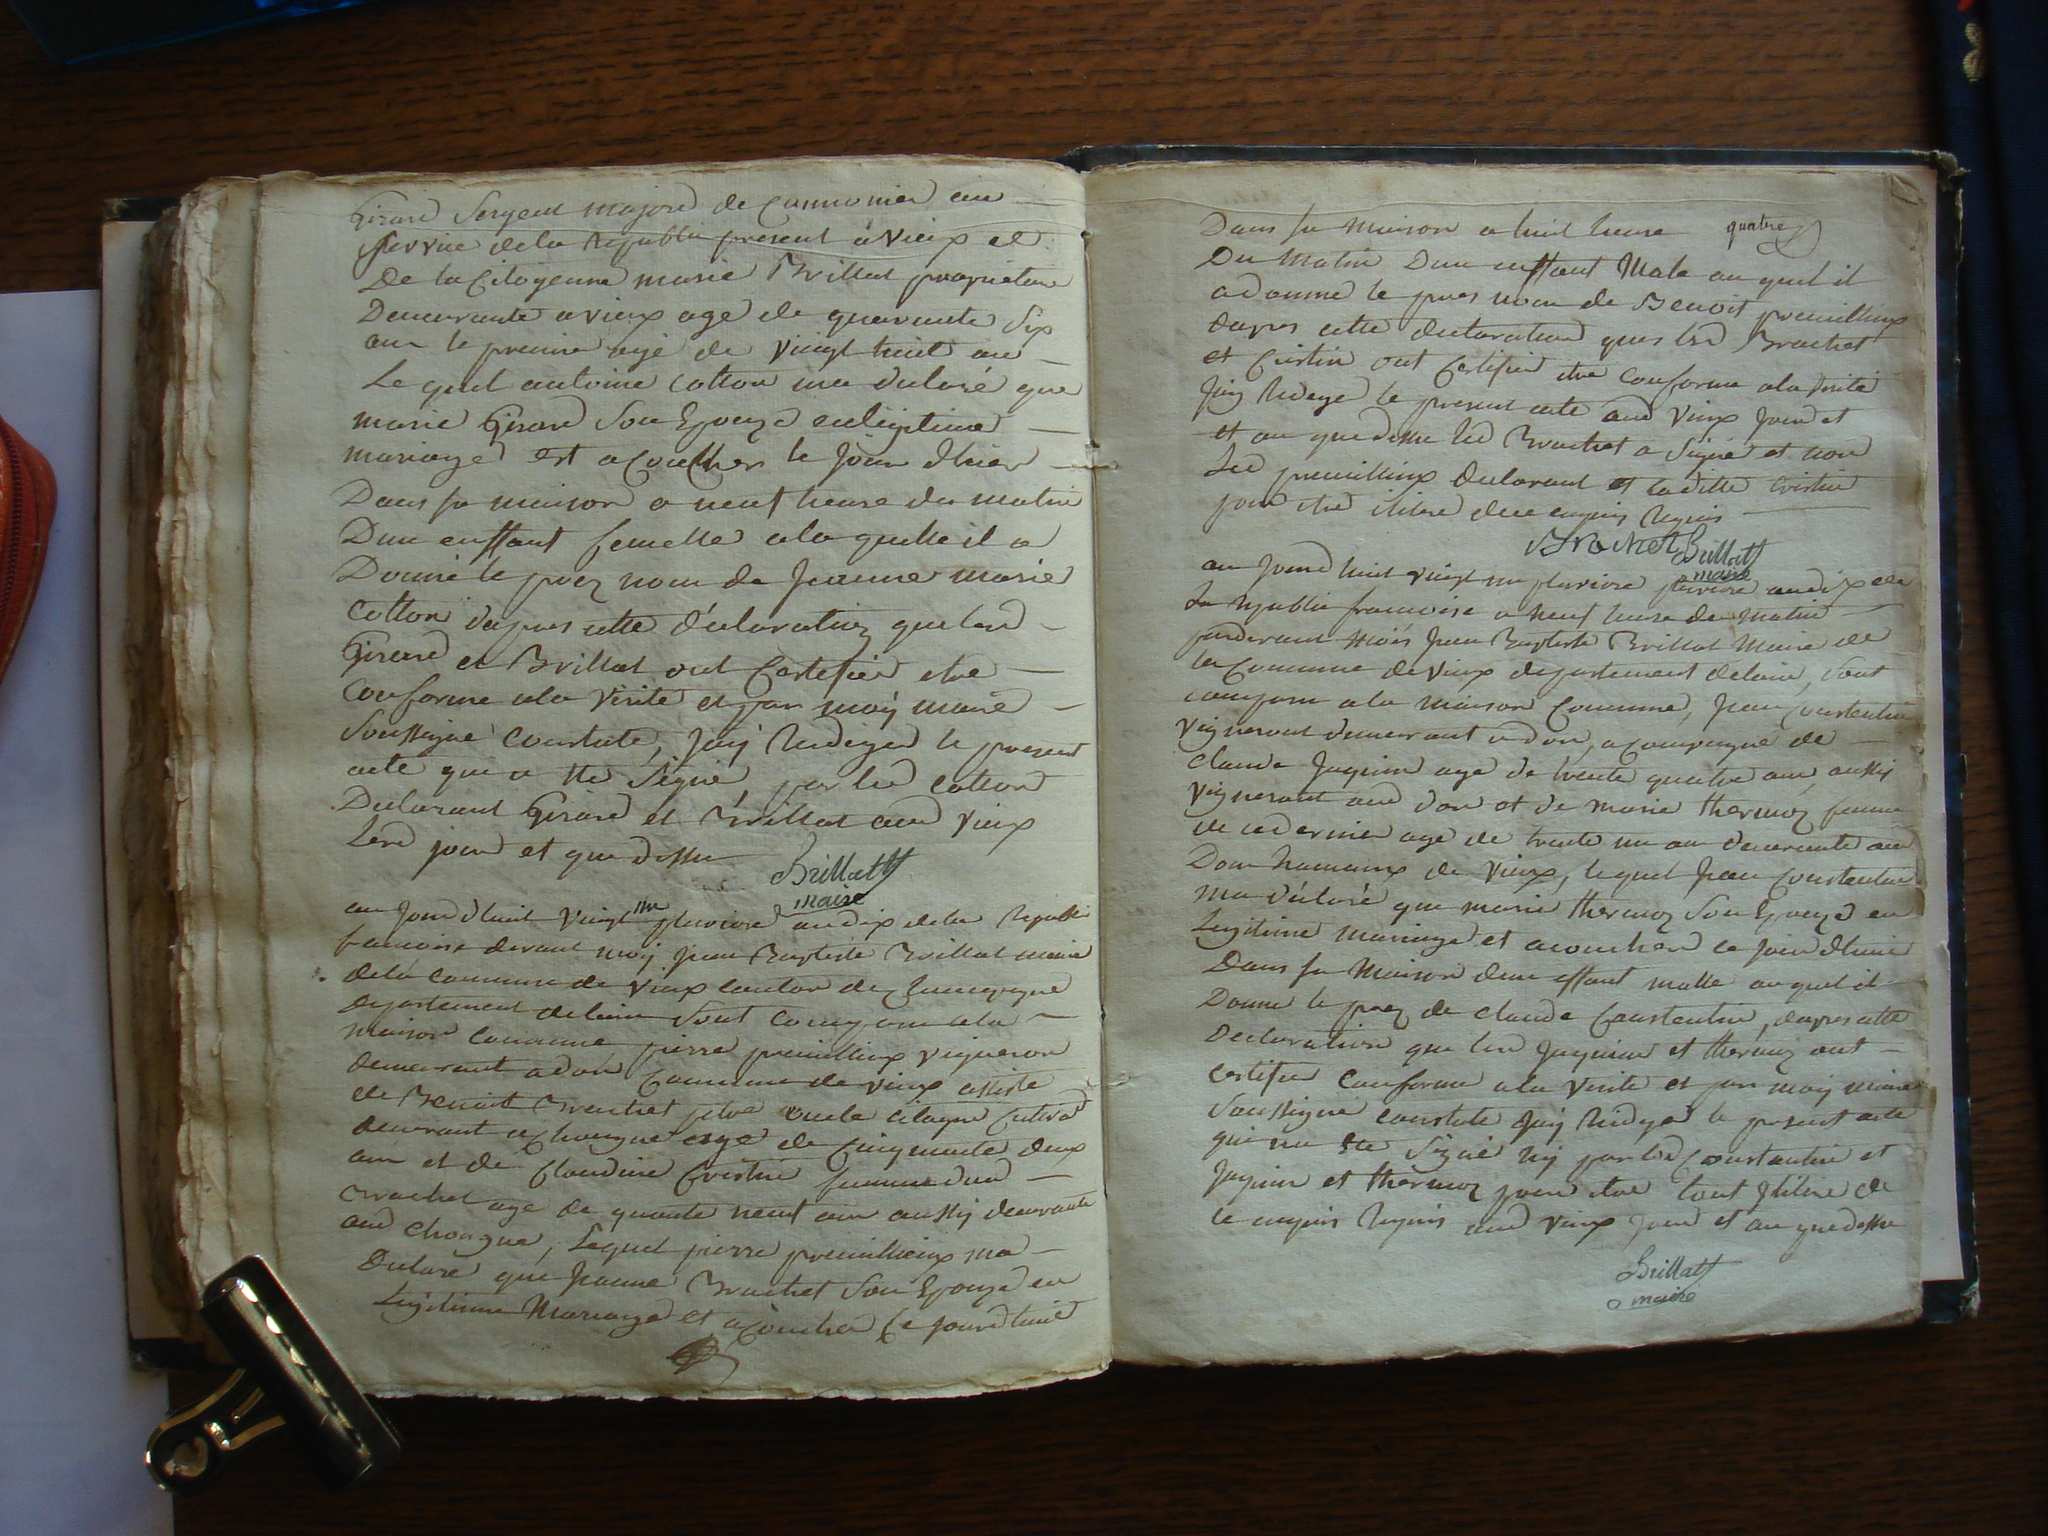 Girard Sergent major de cannonier au
service de la republi present a vieux et
De la Citoyenne marie Brillat propriétaire
Demeurante a vieux age de quarante Six
an le premie agé de vingt huit an
Le quel antoine Cotton ma déclaré que
marie Girard Son Epouze en légitime
mariage est acoucher le jour d'hier
Dans sa maison a neuf heure du matin
Dun enffant femelle a la quelle il a
Donné le prez nom de Jeanne marie
Cotton dapres cette déclaration que led
Girard et Brillat ont Certifié etre
Conforme a la Vérité et par moÿ maire
Soussigné Constaté, jaÿ Redigé le present
acte qui a été Signé, par led Cotton
Declarant Girard et Brillat aud Vieux
Led jour et que dessu
Brillat
maire
au jourd'huit Vingt un pluviose an dix de la Republi
francoise devant moÿ Jean Baptiste Brillat maire
de la commune de Vieux canton de
departement de lain Sont Comparu a la
maison Commune pierre premillieux vigneron
demeurant a don Commune de vieux assisté
de Benoit Brachet
demeurant a Chongne age de Cinquante deux
an et de Claudine Cristin femme dud
Brachet age de quarante neuf an aussÿ demeurante
aud Chongne, Lequel pierre premillieux ma
Declaré que Jeanne Brachet Son Epouze en
Legitime Mariage et acoucher Ce jourd'huit
Dans sa Maison a huit heure quatre
Du Matin Dun enffant Male au quel il
a donné le prez nom de Benoit premillieux
dapres cette declaration que led Brachet
et Cristin ont Certifié etre Conforme a la Vérité
jaÿ Redigé le present acte aud Vieux Jour et
et an que dessu led Brachet a Signé et non
Led premillieux declarant et ladite Cristin
pour etre illitré de ce enquis Requis
Brachet Brillat
maire
au jourd huit vingt un pluviose pluviose an dix de
La republi francoise a neuf heure du matin
pardevant moÿ Jean Baptiste Brillat Maire de
la Commune de Vieux departement de lain, Sont
comparu a la maison Commune, Jean Constantin
vigneront demeurant a don, acompagné de
Claude Juginin age de trente quatre an, aussÿ
vigneront aud don et de marie thermoz femme
de ce dernier age de trente un an demeurante aud
Don hameaux de Vieux, lequel Jean Constantin
ma déclaré que marie thermoz Son Epouze en
Legitime mariage et acoucher ce jour d'huit
Dans sa Maison dun effant malle au quel il
Donne le prez de Claude Constantin, dapres cette
Declaration que led Juginin et thermoz ont
certifié Conforme a la Vérité et par moÿ maire
Soussigné constaté jaÿ Redigé le present acte
qui na été Signé nÿ par led Constantin et
Juginin et thermoz pour etre tout illitré de
ce enquis Requis aud Vieux jour et an que dessu
Brillat
maire